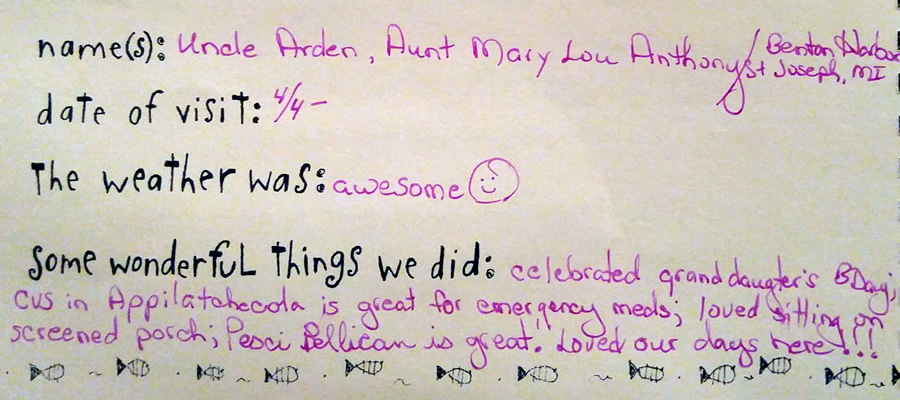 name(s): Uncle Arden, Aunt Mary Lou Anthony / Benton Harbor
St Joseph, MI
date of visit: 4/4 –
The weather was: awesome
some wonderful things we did: celebrated granddaugter's BDay;
CVS in Appilatchecola is great for emergency meds; loved sitting on
screened porch; Pesci Pellican is great. Loved our days here!!!